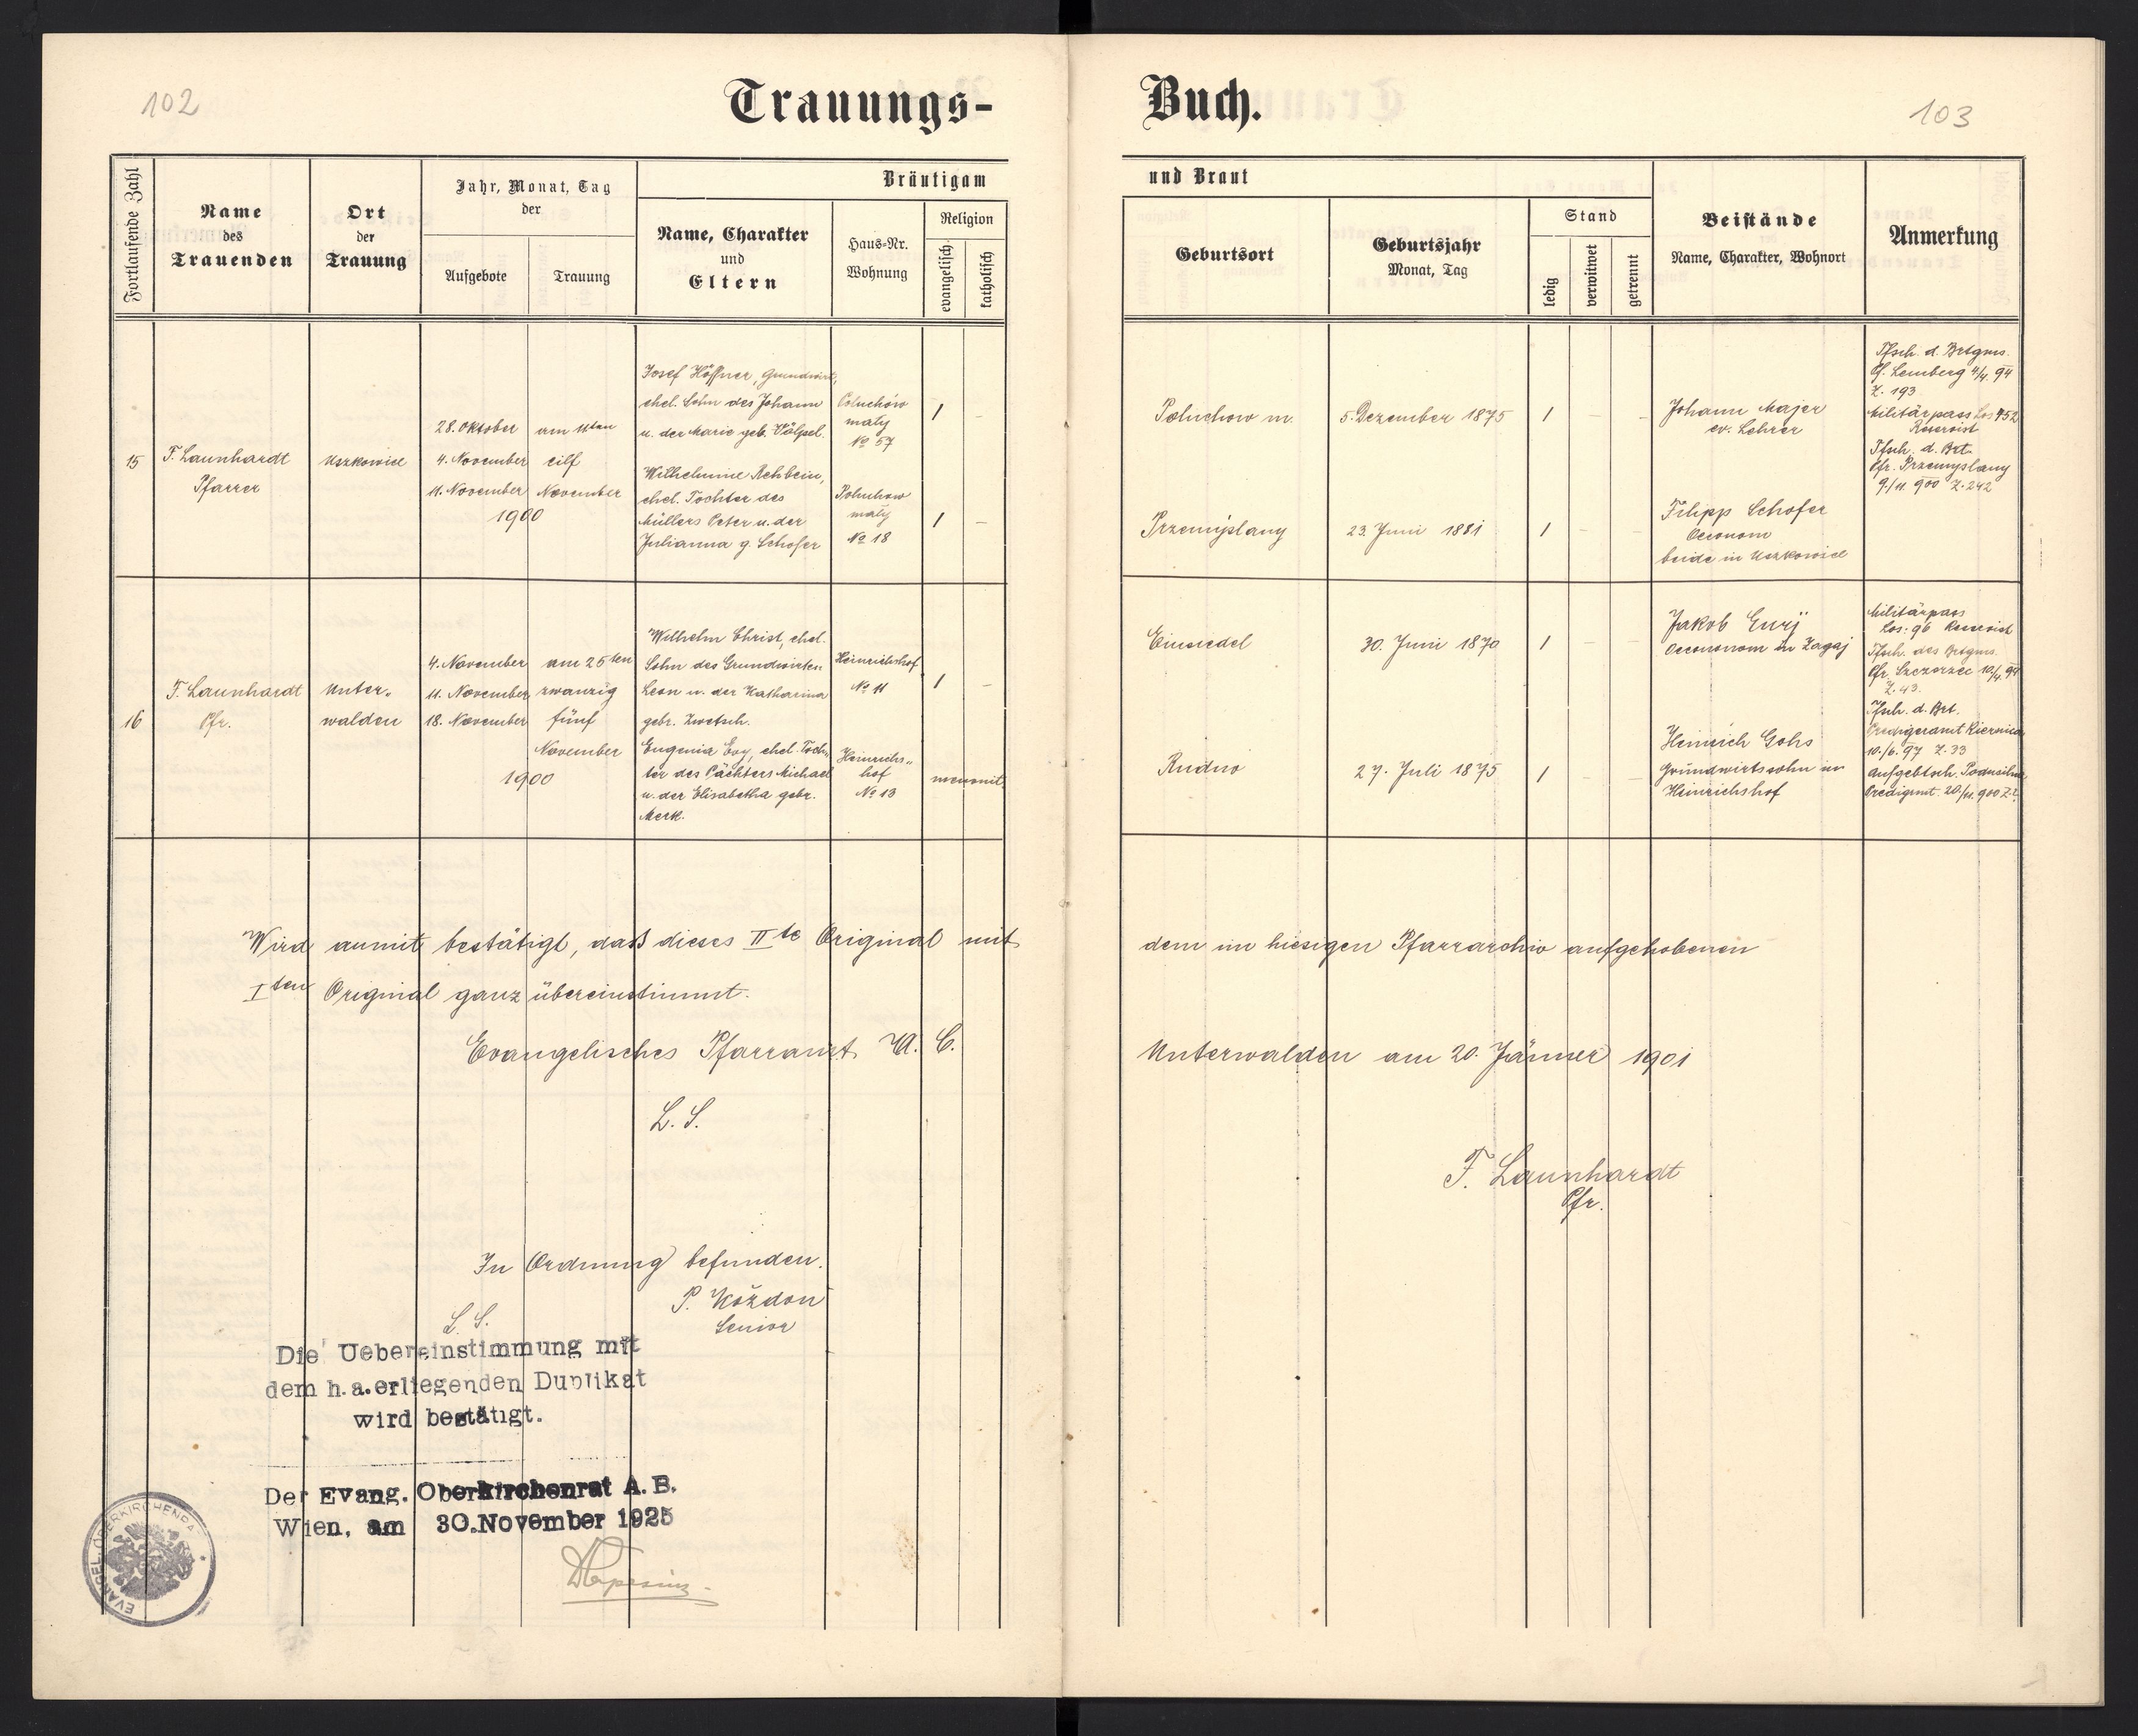 102
Trauungs-
Buch.
103
Fortlaufende Zahl
Name
des
Trauenden
Ort
der
Trauung
Jahr, Monat, Tag
der
Aufgebote
Trauung
Bräutigam
Name, Charakter
und
Eltern
Haus-Nr.
Wohnung
Religion
evangelisch
katholisch
und Braut
Geburtsort
Geburtsjahr
Monat, Tag
Stand
ledig
verwitwet
getrennt
Beistände
Name, Charakter, Wohnort
Anmerkung
15
F. Launhardt
Pfarrer
Uszkowice
28. Oktober
4. November
11. November
am 11ten
eilf
November
1900
Josef Höffner, Grundwirt,
ehel. Sohn des Johann
u. der Marie geb. Völpel.
Poluchów
mały
No 57
/ -
Wilhelmine Rehbein,
ehel. Tochter des
Müllers Peter u. der
Julianna g. Schofer
Poluchow
mały
No 18
/ -
Poluchow m.
5. Dezember 1875
/ - -
Przemyslany
23. Juni 1881
/ - -
Johann Majer
ev. Lehrer
Filipp Schofer
Oeconom
beide in Uszkowice
Tfsch. d. Brtgms.
Pf. Lemberg 4/4. 94
Z. 193
Militärpass Los 452
Reservist
Tfsch. d. Brt.
Pfr. Przemyslany
9./11. 900 Z. 242
16
F. Launhardt
Pfr.
Unter-
walden
4. November
11. November
18. November
am 25ten
zwanzig
fünf
November
1900
Wilhelm Christ, ehel.
Sohn des Grundwirten
Leon u. der Katharina
gebr. Zwetsch.
Heinrichshof
No 11
/ -
Eugenia Ewy, ehel. Toch-
ter des Pächters Michael
u. der Elisabetha gebr.
Merk.
Heinrichs-
hof
No 13
mennonit.
Einsiedel
30. Juni 1870
/ - -
Rudno
27. Juli 1875
/ - -
Jakob Ewy
Oeconomom in Zagaj
Heinrich Gohs
Grundwirtssohn in
Heinrichshof
Militärpass
Los: 96 Reservist
Tfsch. des Brtgms.
Pfr. Szczerzec 10/4. 94
Z. 43.
Tfsch. d. Brt.
Predigeramt Kiernica
10./6. 97 Z. 33
Aufgebtsch.
Predigmt. 20./11. 900
Wird anmit bestätigt, daß dieses IIte Original mit dem im hiesigen Pfarrarchiv aufgehobenen
Iten Original ganz übereinstimmt.
Evangelisches Pfarramt A. C. Unterwalden am 20. Jänner 1901
L. S.
F. Launhardt
Pfr.
In Ordnung befunden.
P. Kożdon
Senior
L. S.
Die Uebereinstimmung mit
dem h.a. erliegenden Duplikat
wird bestätigt.
Der Evang. Oberkirchenrat A. B.
Wien, am 30. November 1925
EVANGEL. OBERKIRCHENRA